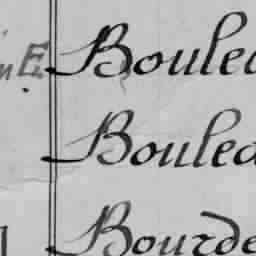 E Boulea
Boulea
Bourde